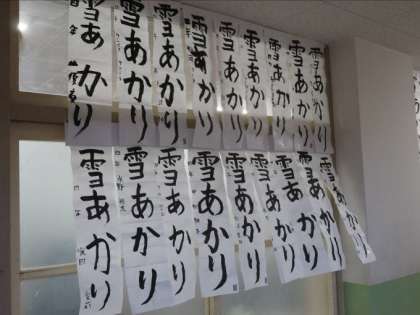 雪あかり
四年
雪あかり
雪あかり
雪あかり
雪あかり
雪あかり
雪あかり
雪あかり
雪あかり
雪あかり
四年
雪あかり
四年
雪あかり
雪あかり
雪あかり
雪あかり
雪あかり
雪あかり
雪あかり